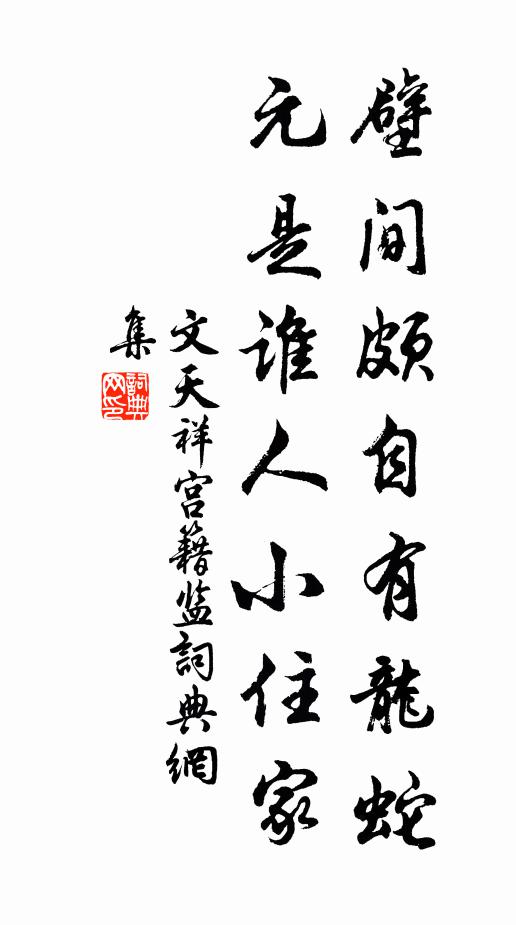 壁間頗自有龍蛇
元是誰人小住家
文天祥宫籍监詞典網
集
詞典网印